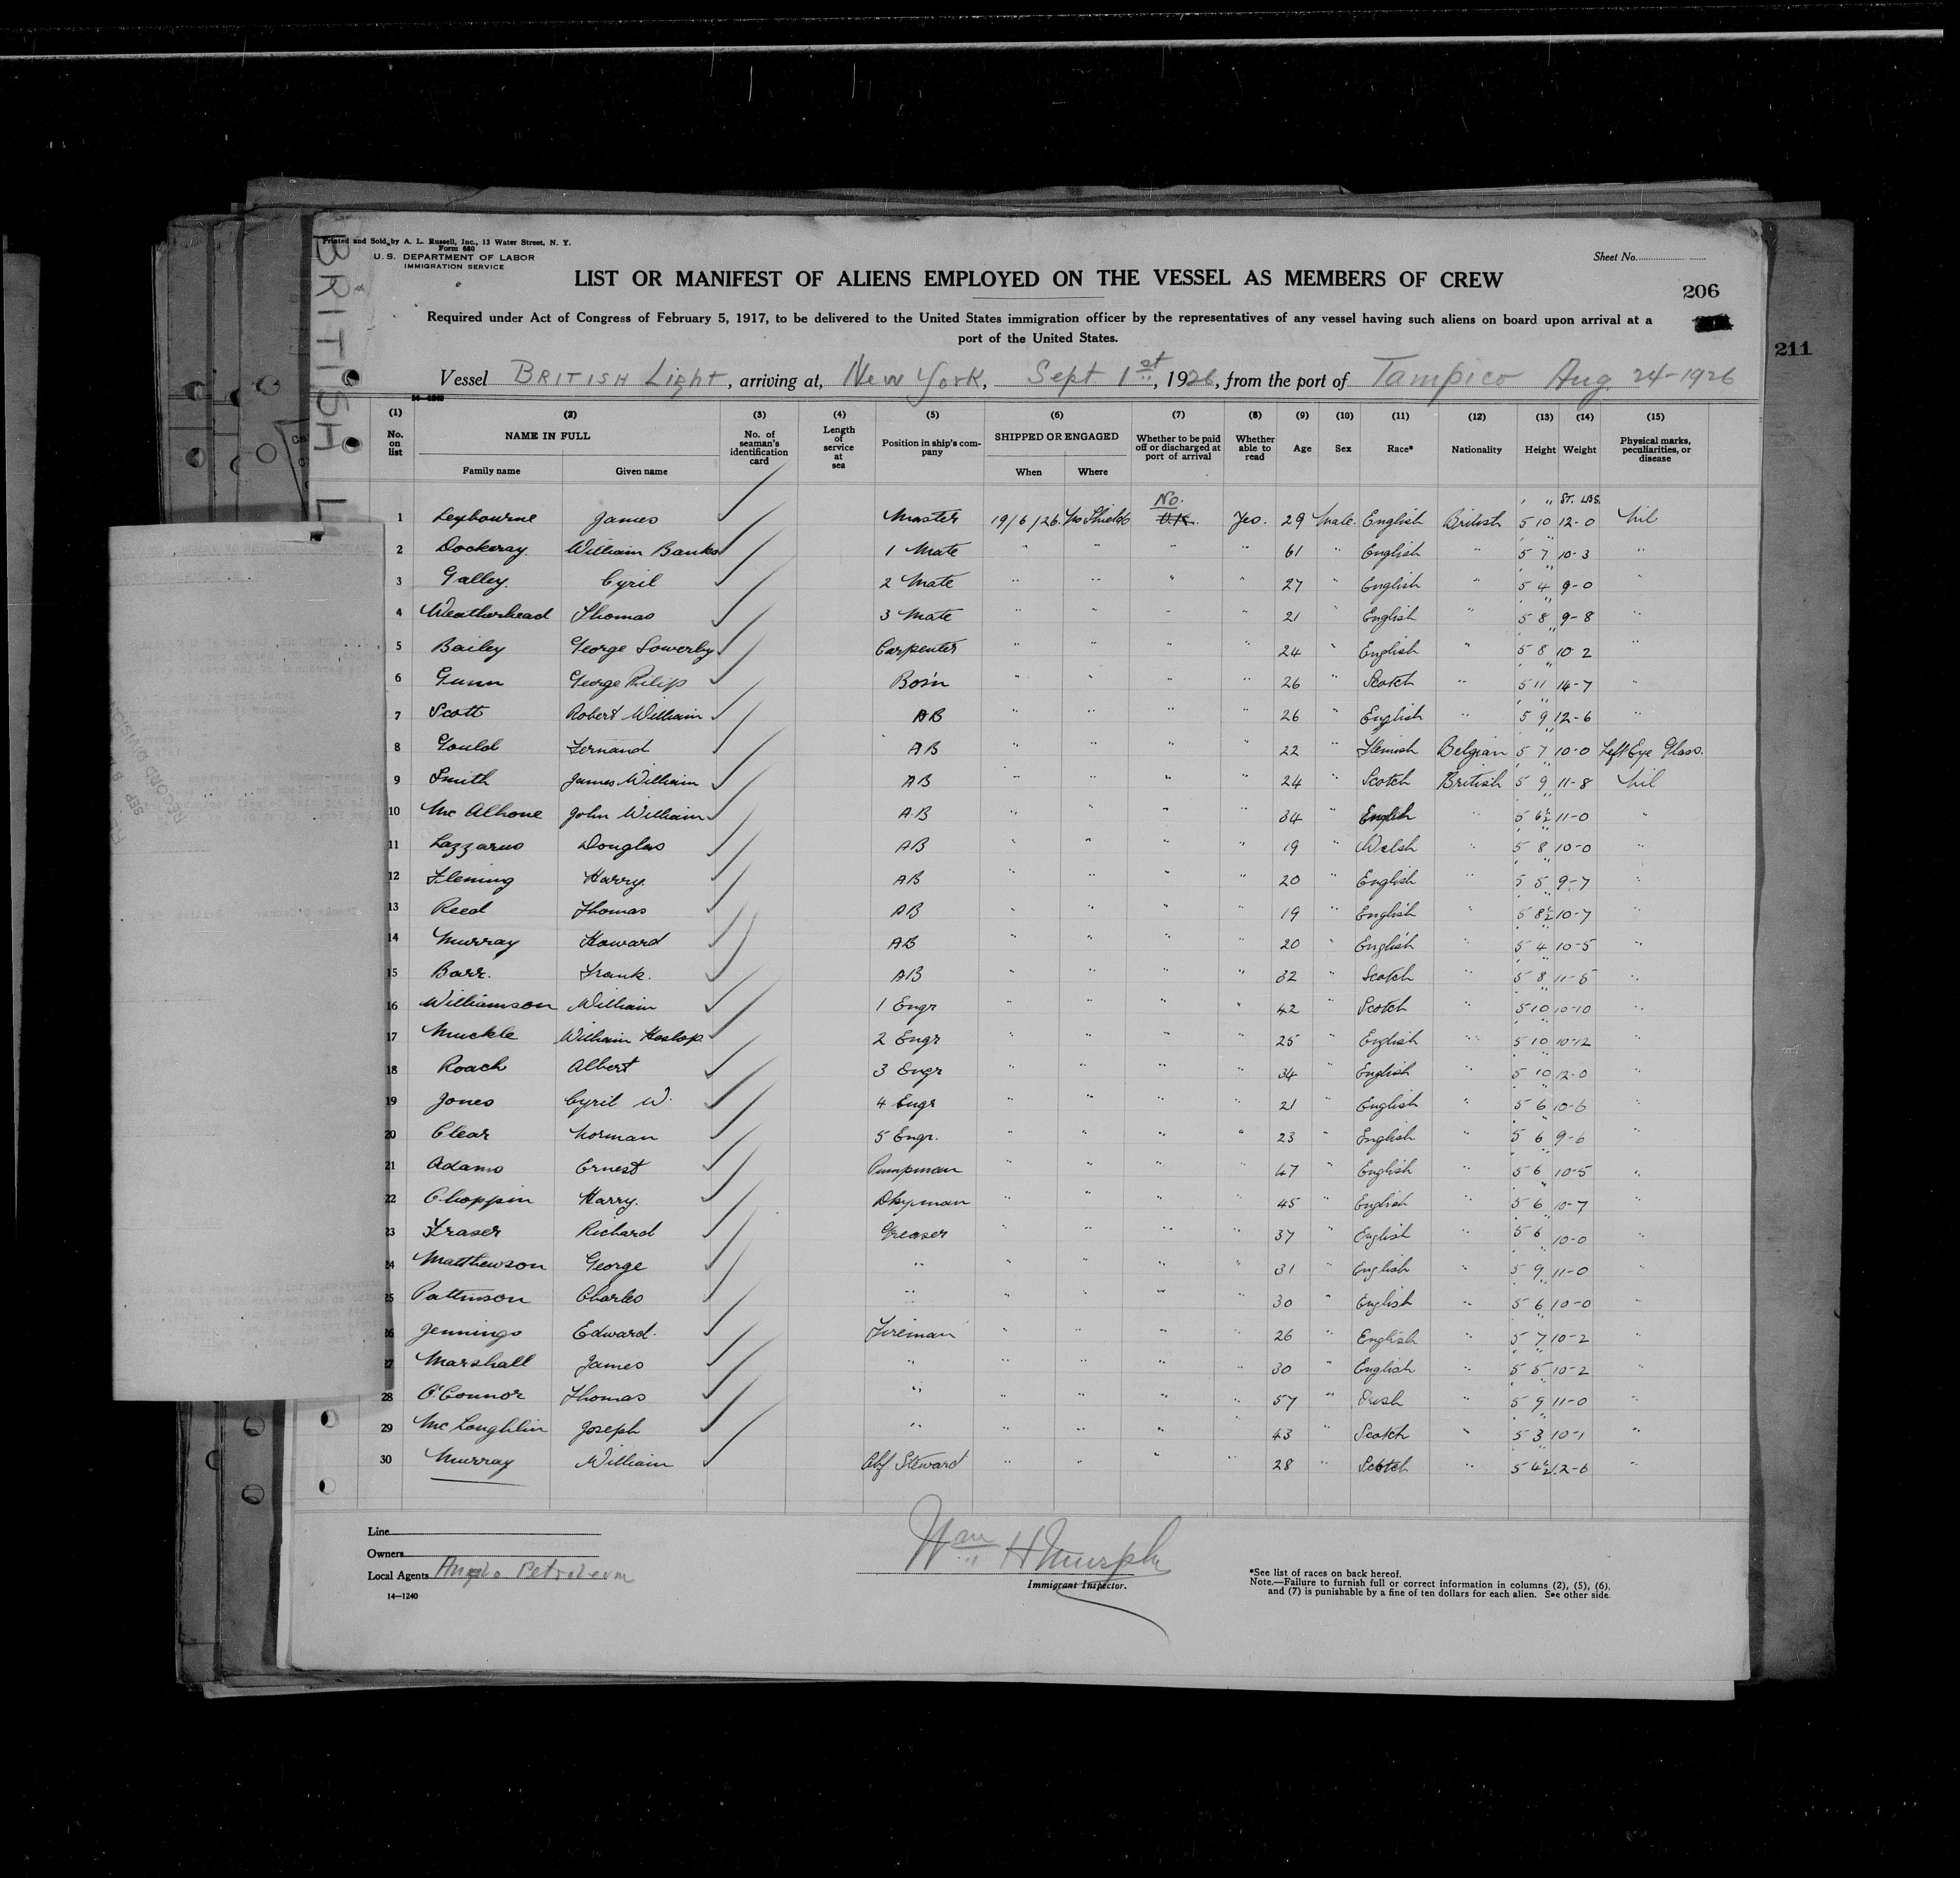 Printed and Sold by A. L. Russell, Inc., 13 Water Street, N. Y.
Form 680
U. S. DEPARTMENT OF LABOR
IMMIGRATION SERVICE
Sheet No.
LIST OR MANIFEST OF ALIENS EMPLOYED ON THE VESSEL AS MEMBERS OF CREW
206
Required under Act of Congress of February 5, 1917, to be delivered to the United States immigration officer by the representatives of any vessel having such aliens on board upon arrival at a
port of the United States.
211
BRITISH L
Vessel BRITISH Light, arriving at, New York, Sept. 1st, 1926, from the port of Tampico Aug. 24-1926
(1) (2) (3) (4) (5) (6) (7) (8) (9) (10) (11) (12) (13) (14) (15)
No. on list NAME IN FULL No. of seaman's identification card Length of service at sea Position in ship's company SHIPPED OR ENGAGED Whether to be paid off or discharged at port of arrival Whether able to read Age Sex Race* Nationality Height Weight Physical marks, peculiarities, or disease
Family name Given name When Where
No. ' " ST. LBS.
1 Leybourne James Master 19/6/26. No Shields U.K. Yes. 29 Male. English British 5 10 12-0 Nil
2 Dockeray William Banks 1 Mate " " " " 61 " English " 5 7 10-3 "
3 Galley. Cyril 2 Mate " " " " 27 " English " 5 4 9-0 "
4 Weatherhead Thomas 3 Mate " " " " 21 " English " 5 8 9-8 "
5 Bailey George Sowerby Carpenter " " " " 24 " English " 5 8 10-2 "
6 Gunn George Philip Bos'n " " " " 26 " Scotch " 5 11 14-7 "
7 Scott Robert William AB " " " " 26 " English " 5 9 12-6 "
8 Gould Fernand AB " " " " 22 " Flemish Belgian 5 7 10-0 Left Eye Glass.
9 Smith James William AB " " " " 24 " Scotch British 5 9 11-8 Nil
10 Mc Alhone John William A.B " " " " 34 " English " 5 6½ 11-0 "
11 Lazzarus Douglas AB " " " " 19 " Welsh " 5 8 10-0 "
12 Fleming Harry. AB " " " " 20 " English " 5 5 9-7 "
13 Reed Thomas AB " " " " 19 " English " 5 8½ 10-7 "
14 Murray Howard AB " " " " 20 " English " 5 4 10-5 "
15 Barr. Frank. AB " " " " 32 " Scotch " 5 8 11-8 "
16 Williamson William 1 Engr " " " " 42 " Scotch " 5 10 10-10 "
17 Muckle William Heslop 2 Engr " " " " 25 " English " 5 10 10-12 "
18 Roach Albert 3 Engr " " " " 34 " English " 5 10 12-0 "
19 Jones Cyril W. 4 Engr " " " " 21 " English " 5 6 10-6 "
20 Clear Norman 5 Engr. " " " " 23 " English " 5 6 9-6 "
21 Adams Ernest Pumpman " " " " 47 " English " 5 6 10-5 "
22 Choppin Harry. Dkyman " " " " 45 " English " 5 6 10-7 "
23 Fraser Richard Greaser " " " " 37 " English " 5 6 10-0 "
24 Matthewson George " " " " " 31 " English " 5 9 11-0 "
25 Pattinson Charles " " " " " 30 " English " 5 6 10-0 "
26 Jennings Edward. Fireman " " " " 26 " English " 5 7 10-2 "
27 Marshall James " " " " " 30 " English " 5 5 10-2 "
28 O'Connor Thomas " " " " " 57 " Irish " 5 9 11-0 "
29 Mc Loughlin Joseph " " " " " 43 " Scotch " 5 3 10-1 "
30 Murray William Chf. Steward " " " " 28 " Scotch " 5 4½ 12-6 "
Line
Owners
Local Agents Anglo Petroleum
14—1240
Wm H Murphy
Immigrant Inspector.
*See list of races on back hereof.
Note.—Failure to furnish full or correct information in columns (2), (5), (6),
and (7) is punishable by a fine of ten dollars for each alien. See other side.